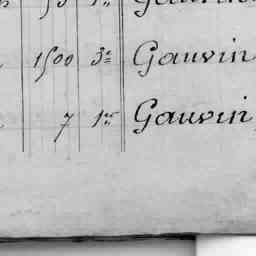 1500 3e Gauvin
7 1er Gauvin